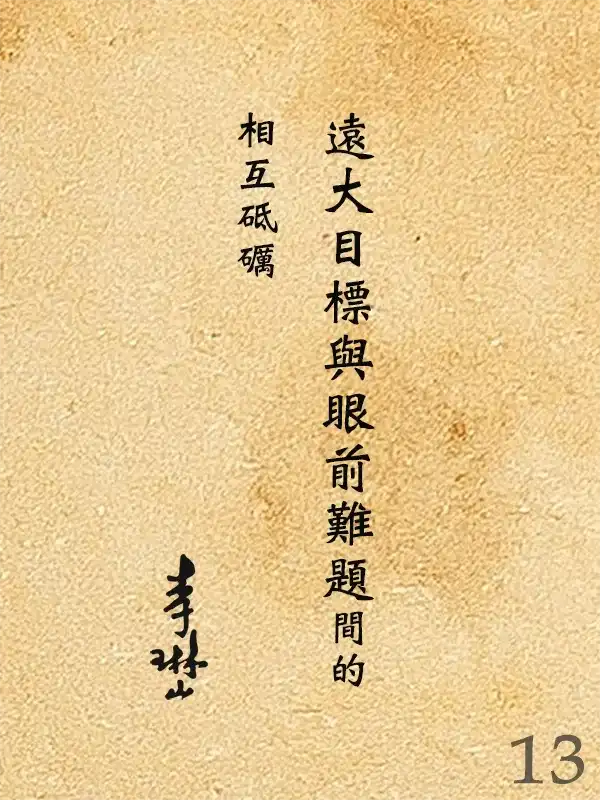 遠大目標與眼前難題間的
相互砥礪
李琳山
13